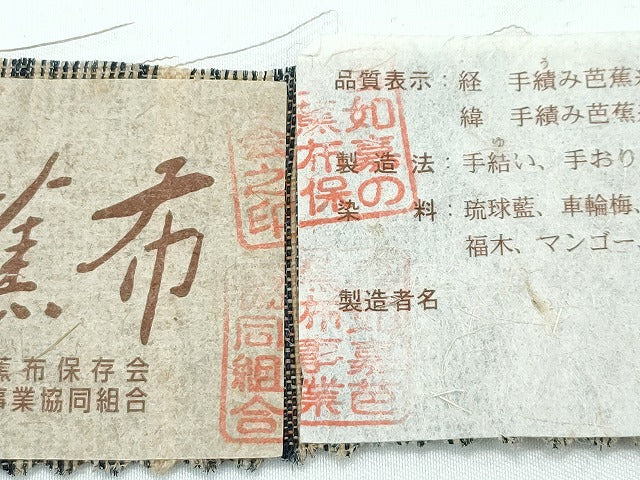 蕉布
蕉布保存会
事業協同組合
品質表示：経 手績み芭蕉糸
緯 手績み芭蕉糸
製造法：手結い、手おり
染料：琉球藍、車輪梅、
福木、マンゴー
製造者名
如嘉の
蕉布保
会之印
嘉芭
布事業
同組合